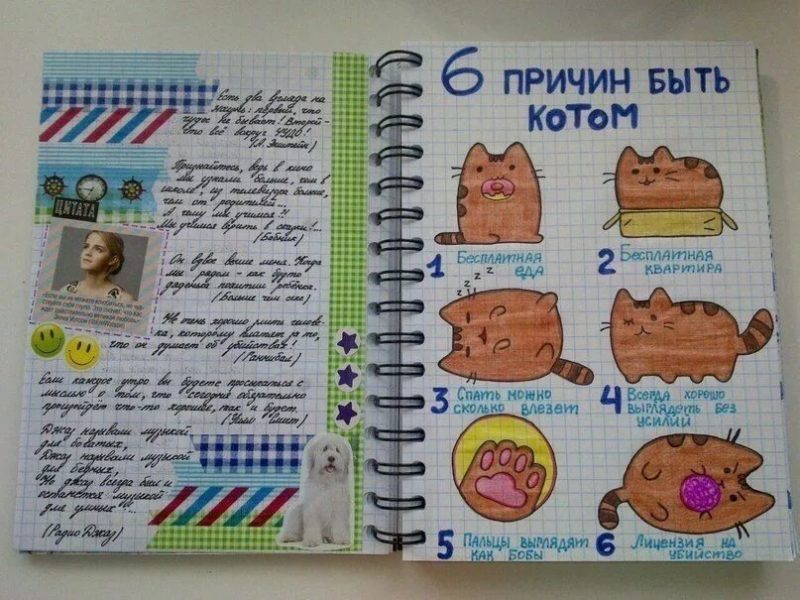 Есть два взгляда на
жизнь: первый, что
чудес не бывает! Второй -
что всё вокруг чудо!
(А. Эйнштейн)
Признайтесь, ведь в кино
мы узнали больше, чем в
школе, из телевизора больше,
чем от родителей...
А чему мы учимся?!
Мы учимся верить в сказки!...
ЦИТАТА
Он вдвое выше меня. Когда
мы рядом - как будто
дяденька похитил ребёнка.
(Больше чем секс)
Не очень хорошо злить челове-
ка, которому платят за то,
что он думает об убийствах!
(Ганнибал)
Если каждое утро вы будете просыпаться с
мыслью о том, что сегодня обязательно
произойдёт что-то хорошее, так и будет.
(Уилл Смит)
Джаз называли музыкой
для богатых,
Джаз называли музыкой
для бедных,
Но джаз всегда был и
останется музыкой
для умных...
(Радио Джаз)
6 ПРИЧИН БЫТЬ
КОТОМ
1 Бесплатная
еда
2 Бесплатная
квартира
z z z z
3 Спать можно
сколько влезет
4 Всегда хорошо
выглядеть без
усилий
5 Пальцы выглядят
как бобы
6 Лицензия на
убийство